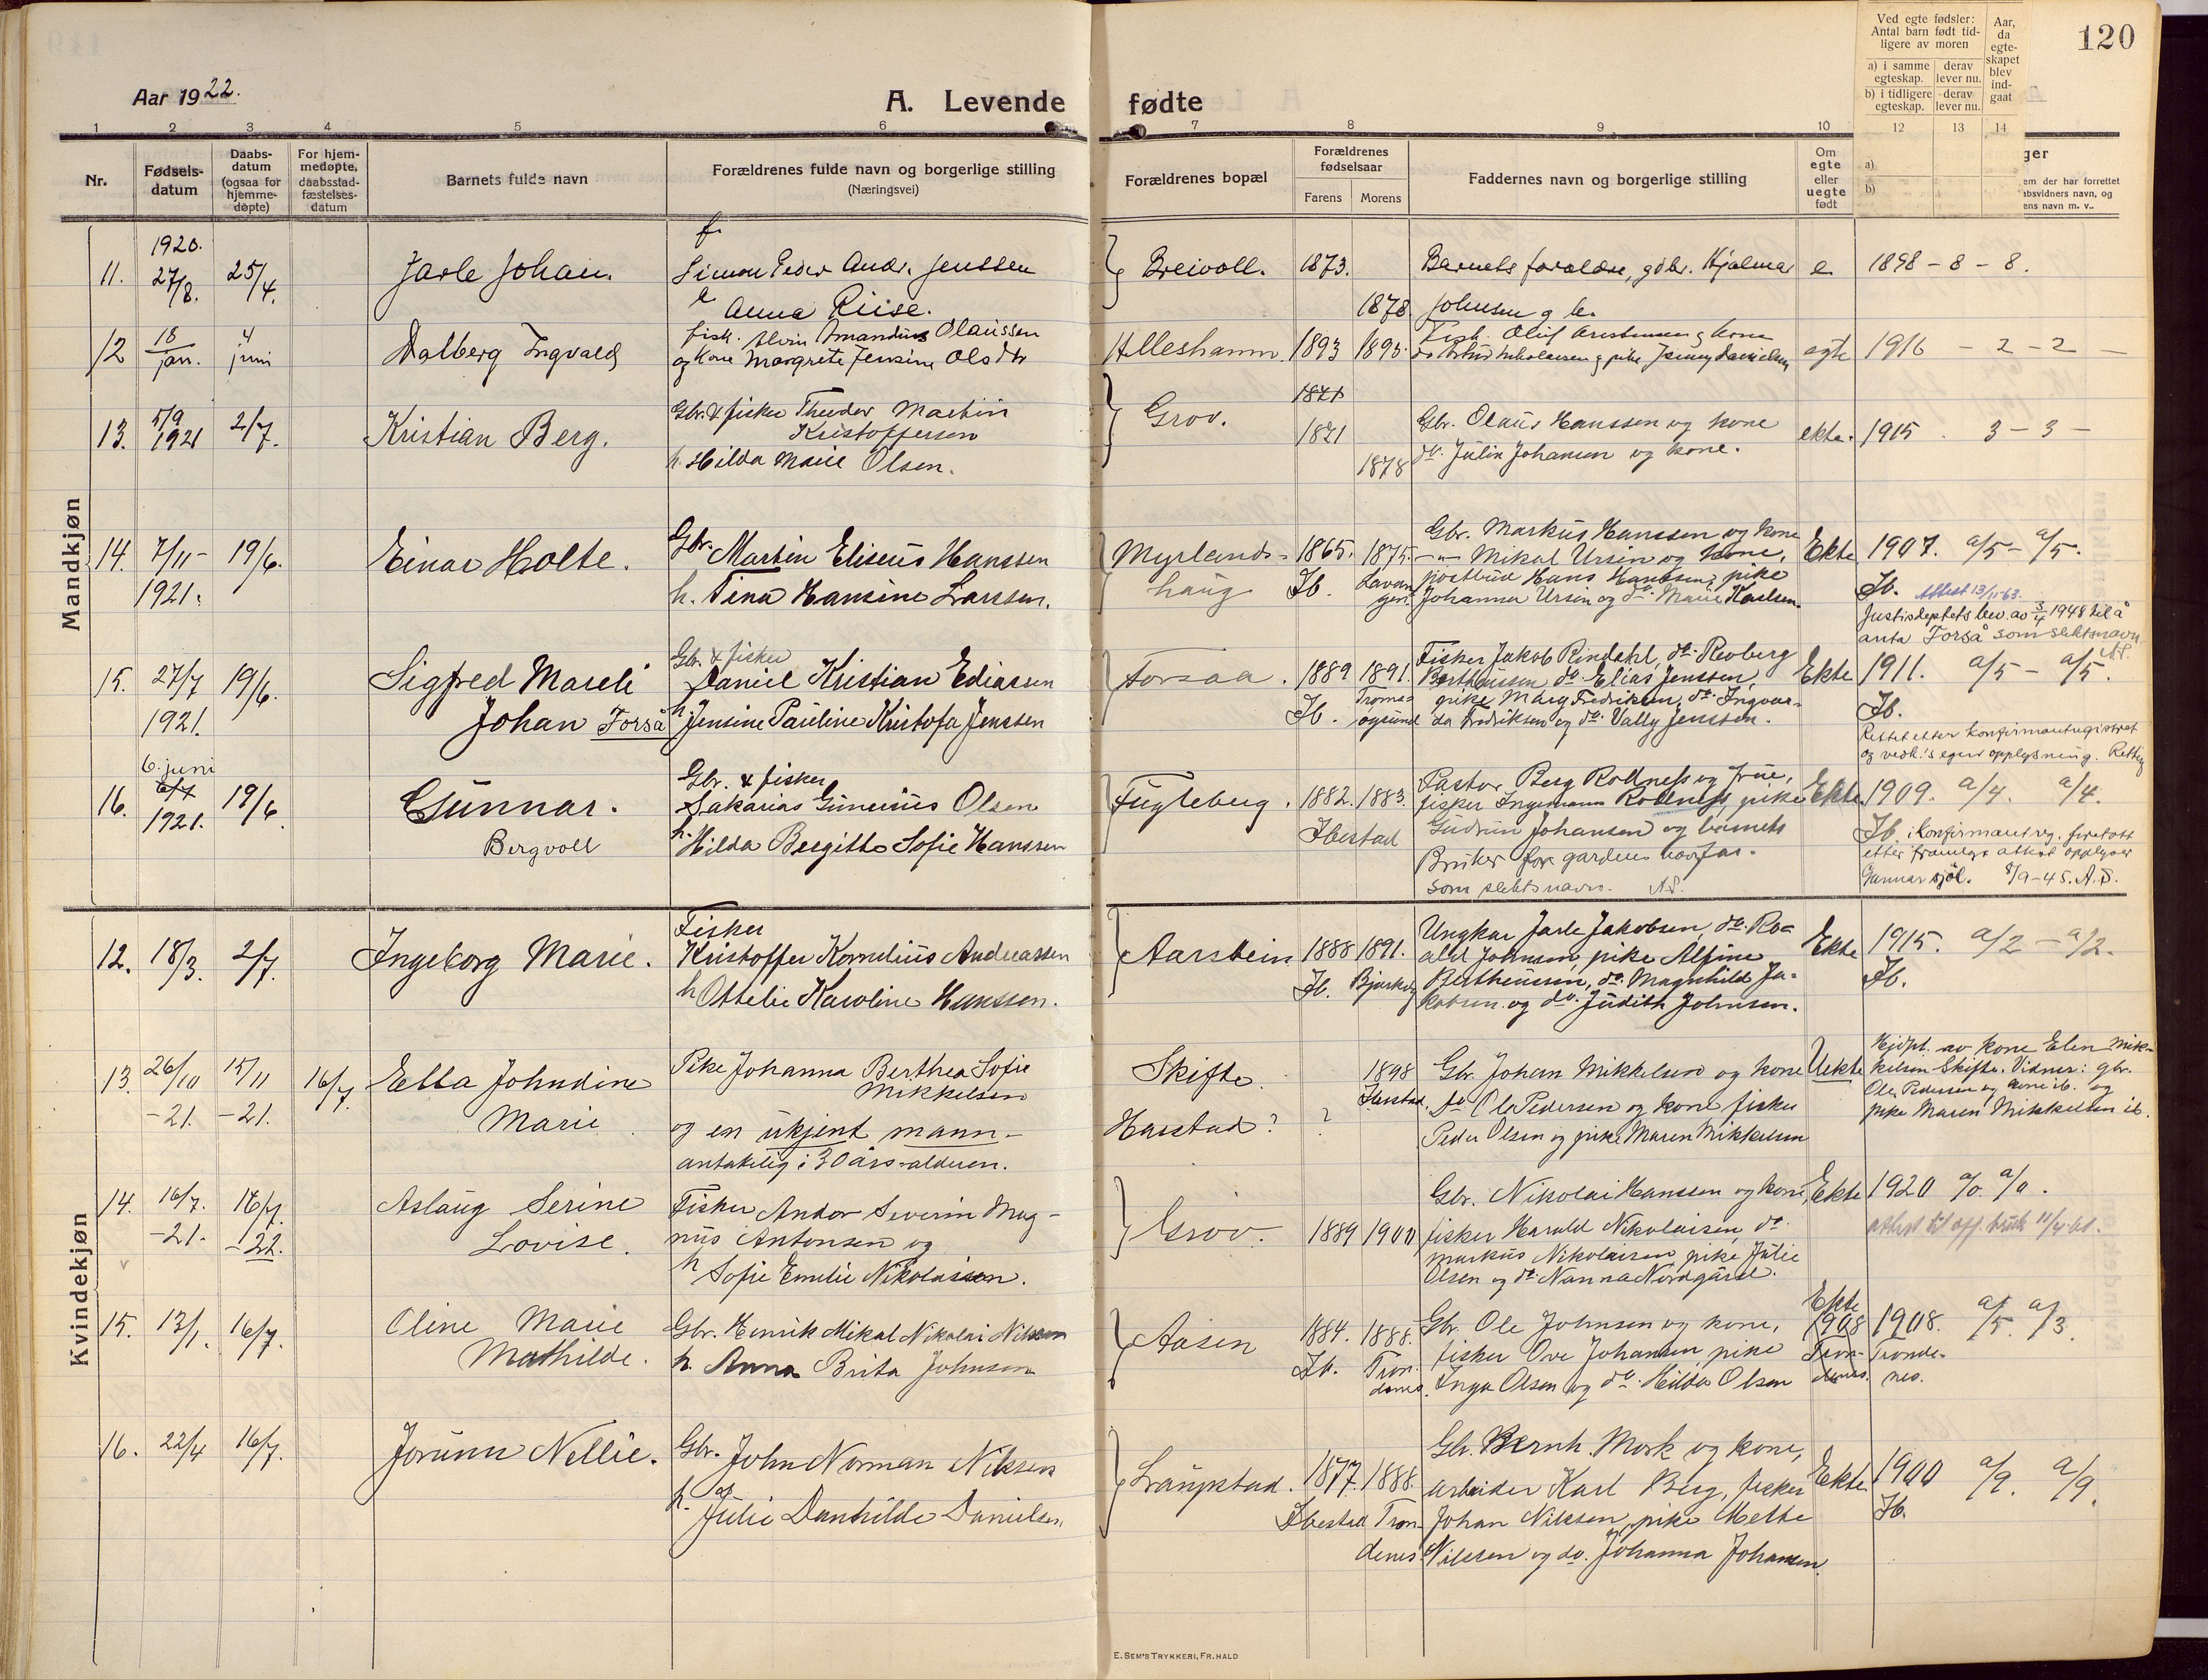 Aar 1922.
A. Levende fødte
120
Ved egte fødsler: Antal barn født tidligere av moren
a) i samme egteskap. derav lever nu.
b) i tidligere egteskap. derav lever nu.
Aar, da egteskapet blev indgaat
1 2 3 4 5 6 7 8 9 10 12 13 14
Nr.
Fødsels-datum
Daabs-datum (ogsaa for hjemme-døpte)
For hjem-medøpte, daabsstad-fæstelses-datum
Barnets fulde navn
Forældrenes fulde navn og borgerlige stilling
(Næringsvei)
Forældrenes bopæl
Forældrenes fødselsaar
Farens Morens
Faddernes navn og borgerlige stilling
Om egte eller uegte født
a)
b)
ger
em der har forrettet
absvidners navn, og
ens navn m. v..
Mandkjøn
11. 1920. 27/8. 25/4. Jarle Johan.
f. Simon Peder Andr. Jenssen
Anna Riise.
Breivoll. 1873. 1878.
Barnets foreldre, gdbr. Hjalmar
Johnsen g
e. 1898 - 8 - 8.
12 18 jan. 4 juni Dalberg Ingvald
fisk. Alvin Amandus Olaussen
og kone Margrete Jensine Olsdtr
Alleshamn 1893 1893
Fisk. Oluf og kone
egte 1916 - 2 - 2 -
13. 5/9 1921 2/7. Kristian Berg.
Gbr. & fisker Theodor Martin
Kristoffersen
h. Hilda Marie Olsen.
Grov. 1821 1821 1878
Gbr. Olaus Hanssen og kone
do. Julin Johansen og kone.
ekte. 1915 3 - 3 -
14. 7/11 - 1921. 19/6. Einar Holte.
Gbr. Martin Eliseus Hanssen
h. Tina Hansine Larssen.
Myrlands-
haug 1865. Ib. 1875. Lavangen.
Gbr. Markus Hanssen og kone
-"- Mikal Ursin og kone,
postbud Hans Hanssen, pike
Johanna Ursin og do. Marie Karlsen.
Ekte 1907. a/5 - a/5.
Ib. Attest 13/11-63.
Justisdeptets bev. av 3/4 1948 til å
anta Forså som slektsnavn
A.S.
15. 27/7 1921. 19/6. Sigfred Mareli
Johan Forså
Gbr. & fisker
Daniel Kristian Ediassen
h. Jensine Pauline Kristofa Jenssen
Forsaa. 1889 Ib. 1891. Tromsøysund
Fisker Jakob Rindahl, do. Revberg
Bertheussen do. Elias Jenssen,
pike Mary Fredriksen, do. Ingvar-
da Fredriksen og do. Vally Jenssen.
Ekte 1911. a/5 - a/5.
Ib.
Rettet etter konfirmantregistret
og vedk.'s egen opplysning.
16. 6. juni 1921. 19/6. Gunnar.
Bergvoll
Gbr. & fisker
Sakarias Gunerius Olsen
h. Hilda Bergitte Sofie Hanssen
Fugleberg. 1882. 1883. Ibestad
Pastor Berg Rollness og frue,
fisker Ingemann Rollness, pike
Gudrun Johansen og barnets
Bruker for gardens navn
som slektsnavn. A.S.
Ekte 1909. a/4. a/4.
Ib. i konfirmantreg. foretatt
etter framlagt attest opplyser
Gunnar sjøl. 8/9-45. A.S.
Kvindekjøn
12. 18/3. 2/7. Ingeborg Marie.
Fisker
Kristoffer Kornelius Andreassen
h Ottelie Karoline Hanssen.
Aarstein 1888 Ib. 1891. Bjarkøy
Ungkar Jarle Jakobsen, do. Ro-
ald Johnsen, pike Alfine
Bertheussen, do. Magnhild Ja-
kobsen og do. Judith Johnsen.
Ekte 1915. a/2 - a/2.
Ib.
13. 26/10 -21. 15/11 -21. 16/7. Ebba Johndine
Marie
Pike Johanna Berthea Sofie
Mikkelsen
og en ukjent mann -
antakelig i 30 års-alderen.
Skifte. Harstad? ? 1898 Ibestad.
Gbr. Johan Mikkelsen og kone
do Ole Pedersen og kone fisker
Peder Olsen og pike Maren Mikkelsen
Uekte
Hjdpt. av kone Elen Mik-
kelsen Skifte. Vidner: gbr.
Ole Pedersen og kone ib. og
pike Maren Mikkelsen ib.
14. 16/7. -21. 16/7. -22. Aslaug Serine
Lovise.
Fisker Andor Severin Mag-
nus Antonsen og
h Sofie Emelie Nikolaisen.
Grov. 1889 1900
Gbr. Nikolai Hanssen og kone,
fisker Harald Nikolaisen, do.
Markus Nikolaisen, pike Julie
Olsen og do. Nanna Nordgård.
Ekte 1920 a/0. a/0.
attest til off. bruk
15. 13/1. 16/7. Oline Marie
Mathilde.
Gbr. Henrik Mikal Nikolai Nilssen
h. Anna Brita Johnsen
Aasen 1884. Ib. 1888. Trondenes.
Gbr. Ole Johnsen og kone,
fisker Ove Johansen, pike
Inga Olsen og do. Hilda Olsen
Ekte 1908 Trondenes. 1908. a/5. a/3.
Trondenes.
16. 22/4 16/7. Jorunn Nellie.
Gbr. John Norman Nilssen
og
h. Julie Danhilde Danielsen
Langstad. 1877. Ibestad 1888. Trondenes
Gbr. Bernh. Mork og kone,
arbeider Karl Berg, fisker
Johan Nilssen, pike Mette
Nilssen og do. Johanna Johansen.
Ekte 1900 a/9. a/9.
Ib.
E. SEM'S TRYKKERI, FR.HALD